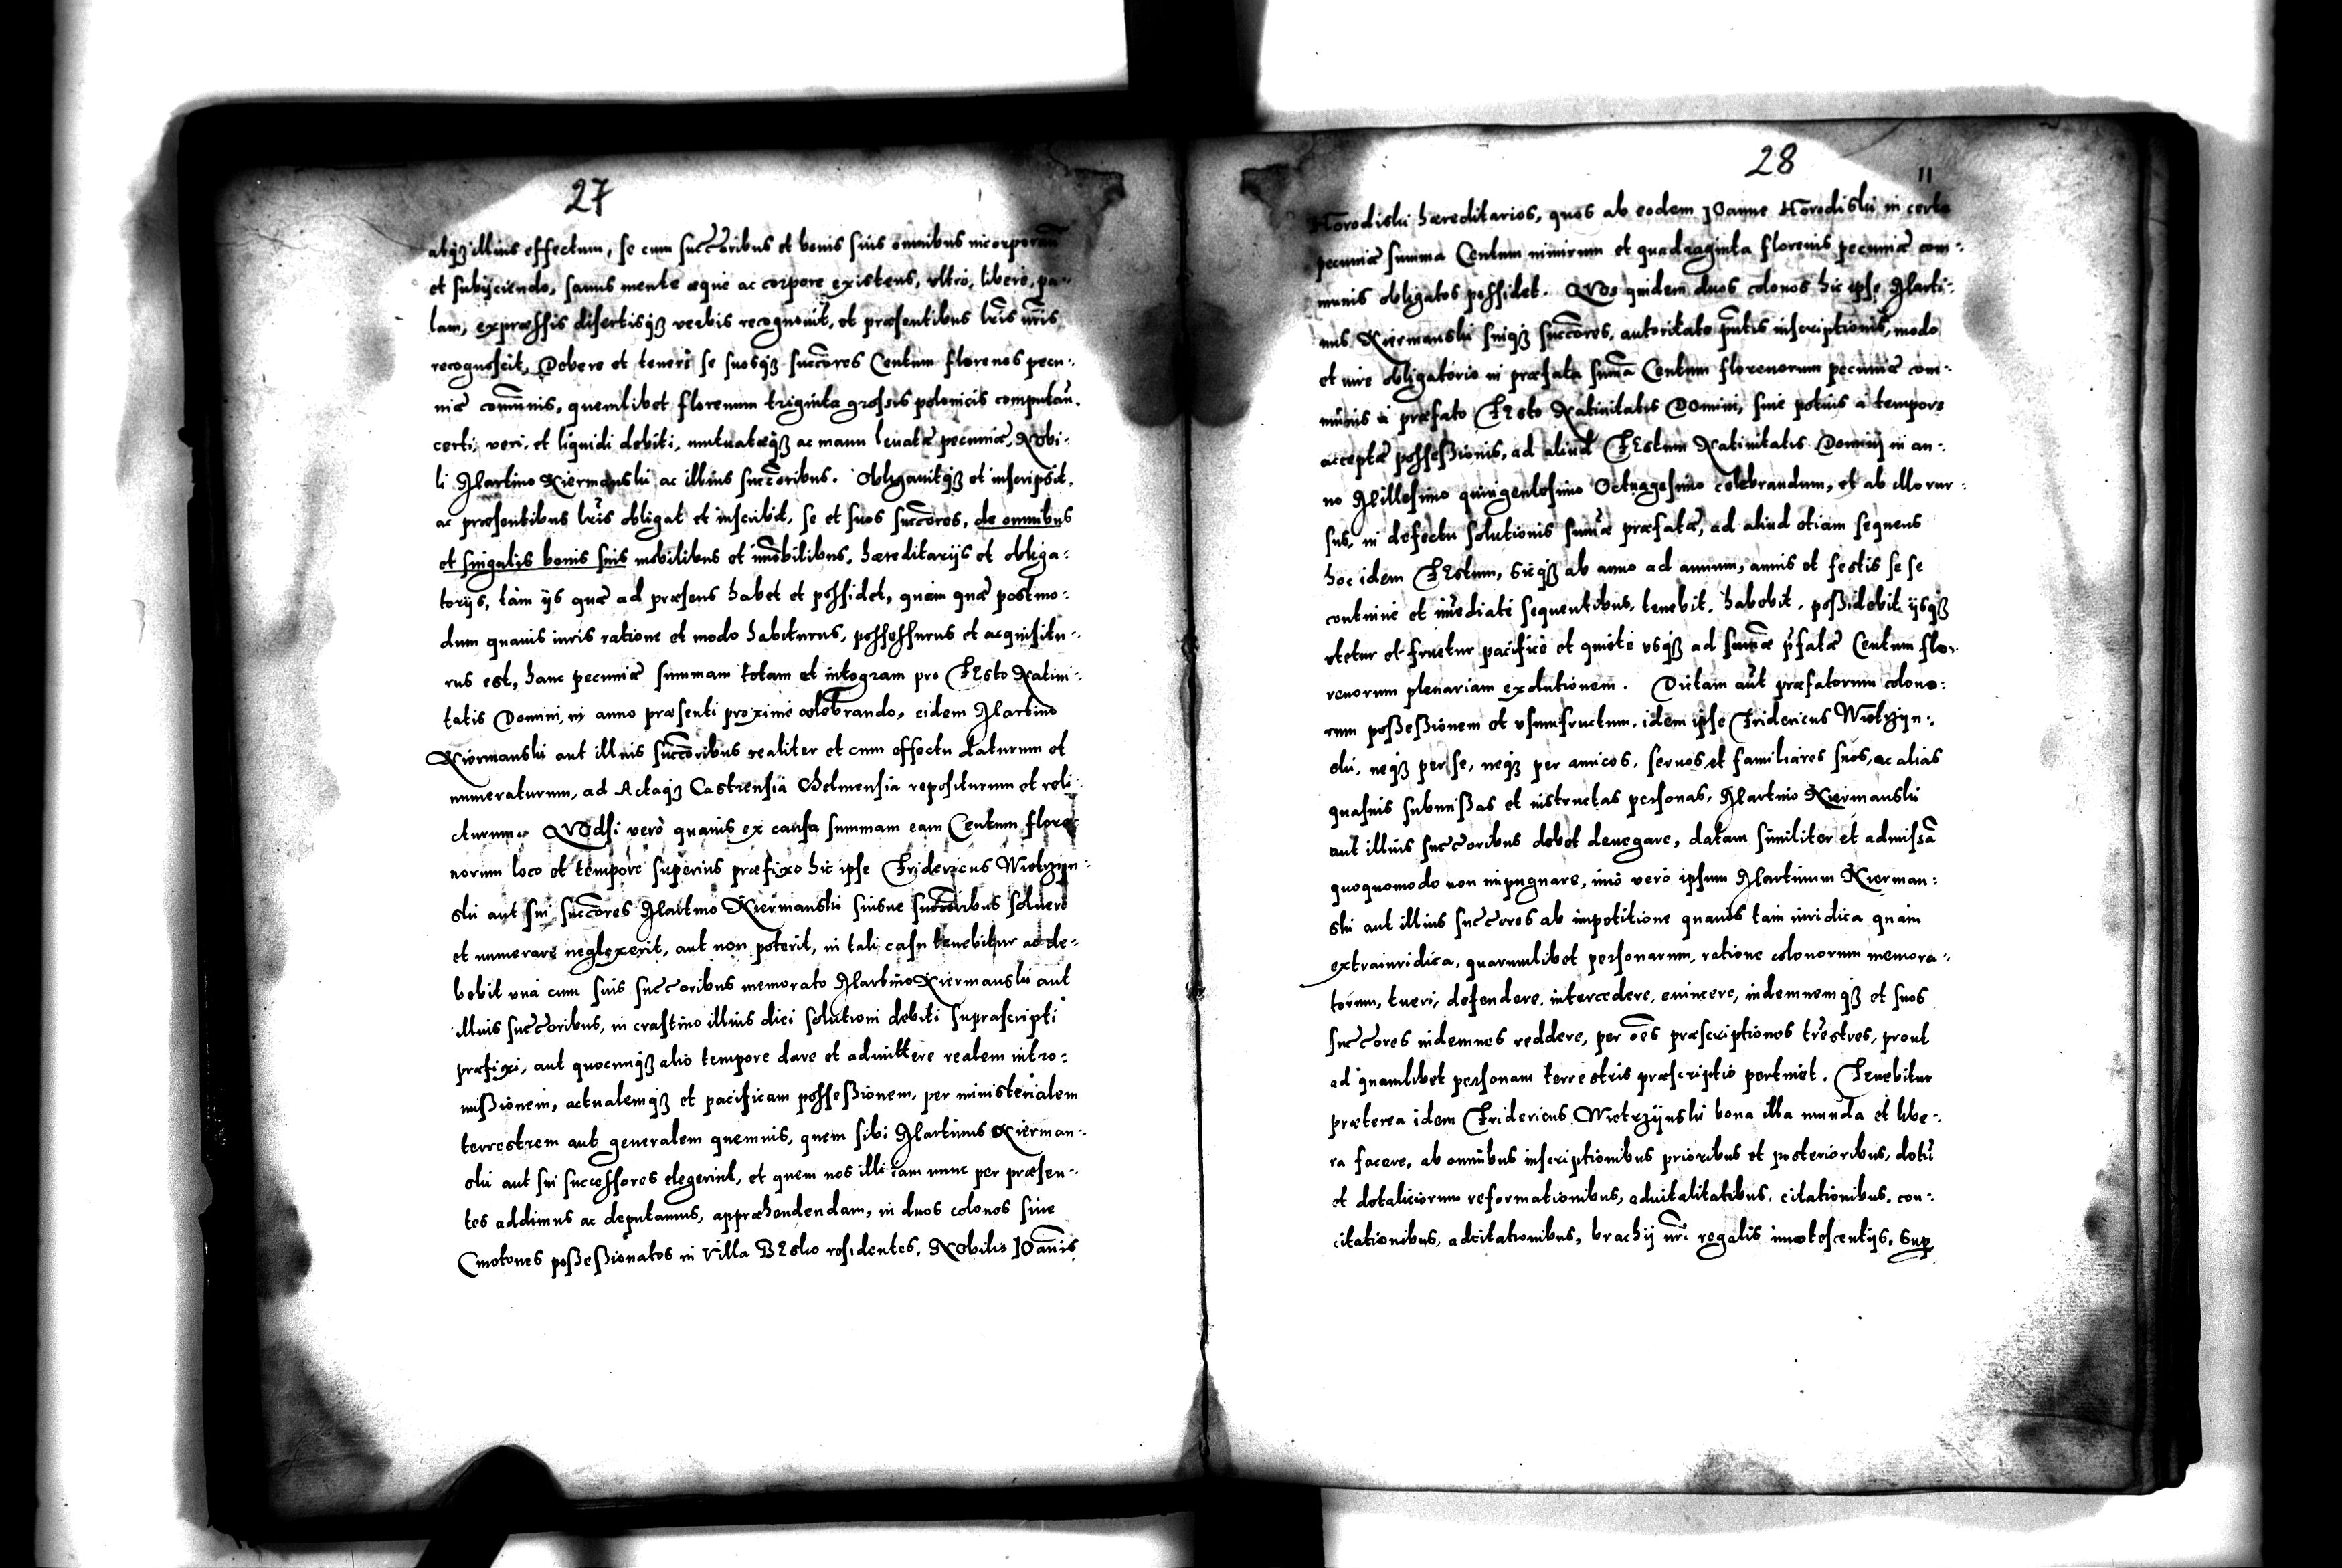 27
atq₃ illius effectum, se cum succoribus et bonis suis omnibus incorporan̄
et subijciendo, sanus mente æque ac corpore existens, vltrò, liberè, pa-
lam, expræssis disertisq₃ verbis recognouit, et præsentibus lr̄is nr̄is
recognoscit, Debere et teneri se suosq₃ succores Centum florenos pecu-
niæ com̄unis, quemlibet florenum triginta grossis polonicis computan̄.
certi, veri, et liquidi debiti, mutuatæq₃ ac manu leuatæ pecuniæ, Nobi-
li Martino Kiermanski ac illius succoribus. Obligauitq₃ et inscripsit,
ac præsentibus lr̄is obligat et inscribit, se et suos succores, de omnibus
et singulis bonis suis mobilibus et im̄obilibus, hæreditarijs et obliga-
torijs, tàm ijs quæ ad præsens habet et possidet, quàm quæ postmo-
dum quauis iuris ratione et modo habiturus, possessurus et acquisitu-
rus est, hanc pecuniæ summam totam et integram pro FEsto Natiui-
tatis Domini, in anno præsenti proximè celebrando, eidem Martino
Kiermanski aut illius succoribus realiter et cum effectu daturum et
numeraturum, ad Actaq₃ Castrensia Chelmensia repositurum et reli-
cturum. QVOdsi verò quauis ex causa summam eam Centum flore-
norum loco et tempore superius præfixo hic ipse Fridericus Wietrzyn-
ski aut sui succores Martino Kiermanski suisue succoribus soluere
et numerare neglexerit, aut non poterit, in tali casu tenebitur ac de-
bebit vnà cum suis succoribus memorato Martino Kiermanski aut
illius succoribus, in crastino illius diei solutioni debiti suprascripti
præfixi, aut quocunq₃ alio tempore dare et admittere realem intro-
missionem, actualemq₃ et pacificam possessionem, per ministerialem
terrestrem aut generalem quemuis, quem sibi Martinus Kierman-
ski aut sui successores elegerint, et quem nos illi iam nunc per præsen-
tes addimus ac deputamus, appræhendendam, in duos colonos siue
Cmetones possessionatos in Villa BEsko residentes, Nobilis IOan̄is
28
11
Horodiski hæreditarios, quos ab eodem IOanne Horodiski in certa
pecuniæ summa Centum nimirum et quadraginta florenis pecuniæ com-
munis obligatos possidet. QVOs quidem duos colonos hic ipse Marti-
nus Kiermanski suiq₃ succores, autoritate p̄ntis inscriptionis, modo
et iure obligatorio in præfata sum̄a Centum florenorum pecuniæ com-
munis à præfato FEsto Natiuitatis Domini, siue potius à tempore
acceptæ possessionis, ad aliud FEstum Natiuitatis Domini in an-
no Millesimo quingentesimo Octuagesimo celebrandum, et ab illo rur-
sus, in defectu solutionis sum̄æ præfatæ, ad aliud etiam sequens
hoc idem FEstum, sicq₃ ab anno ad annum, annis et festis se se
continuè et im̄ediatè sequentibus, tenebit, habebit, possidebit, ijsq₃
vtetur et fruetur pacificè et quietè vsq₃ ad sum̄æ p̄fatæ Centum flo-
renorum plenariam exolutionem. Dictam aūt præfatorum colono-
rum possessionem et vsumfructum, idem ipse Fridericus Wietrzyn-
ski, neq₃ per se, neq₃ per amicos, seruos et familiares suos, ac alias
quasuis submissas et instructas personas, Martino Kiermanski
aut illius succoribus debet denegare, datam similiter et admissā
quoquomodo non impugnare, imò verò ipsum Martinum Kierman-
ski aut illius succores ab impetitione quauis tam iuridica quàm
extraiuridica, quarumlibet personarum, ratione colonorum memora-
torum, tueri, defendere, intercedere, euincere, indemnemq₃ et suos
succores indemnes reddere, per oēs præscriptiones tr̄estres, prout
ad quamlibet personam terrestris præscriptio pertinet. Tenebitur
præterea idem Fridericus Wietrzijnski bona illa munda et libe-
ra facere, ab omnibus inscriptionibus prioribus et posterioribus, doti
et dotaliciorum reformationibus, aduitalitatibus, citationibus, con-
citationibus, adcitationibus, brachij nr̄i regalis innotescentijs, sup